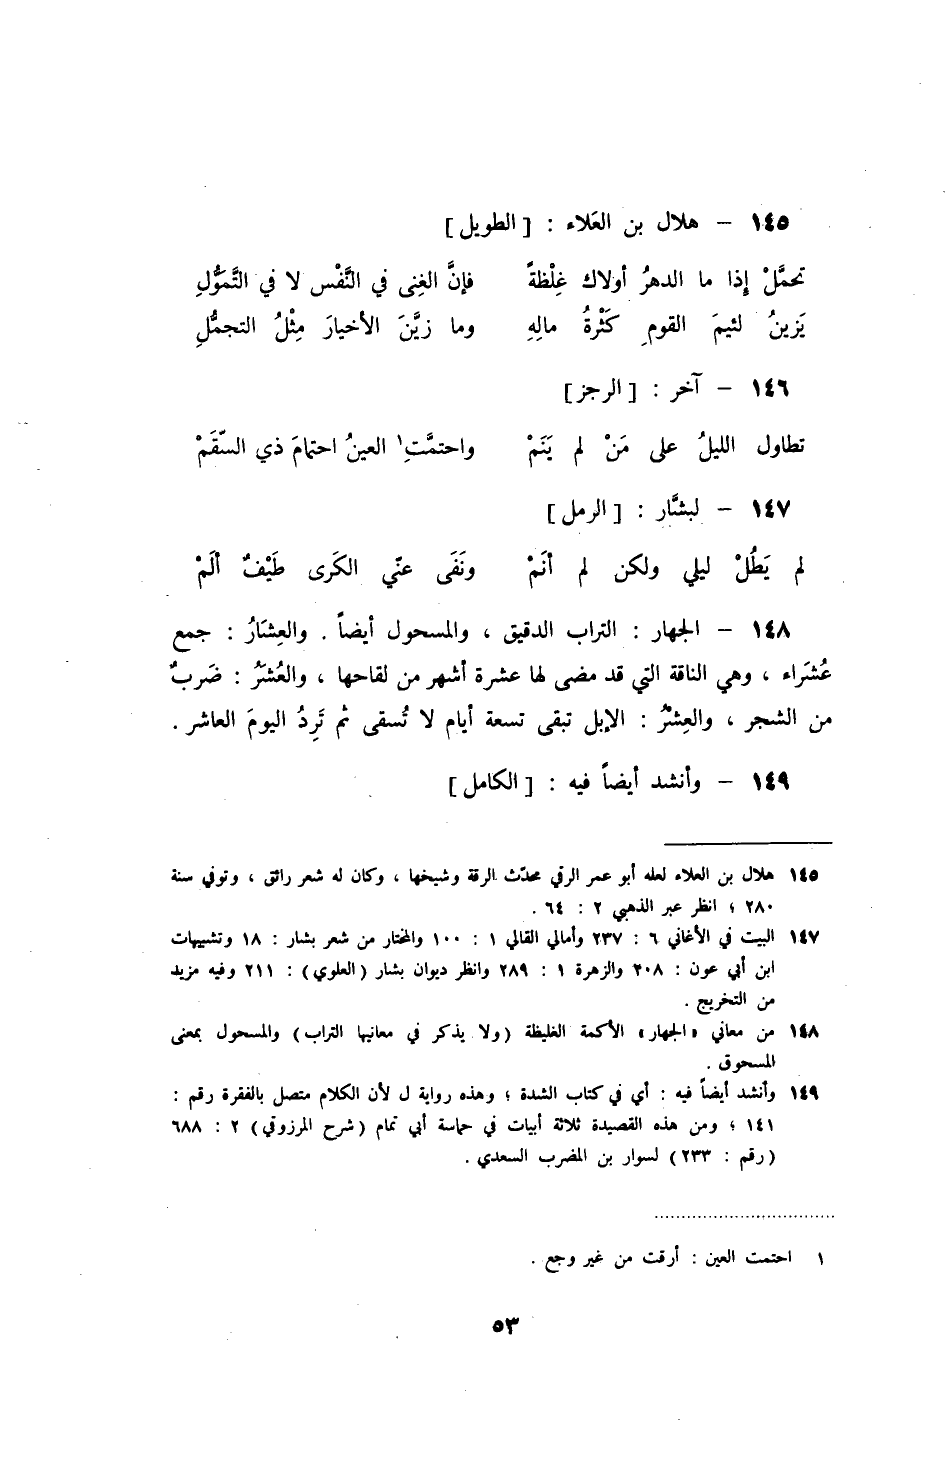 ١٤٥ – هلال بن العَلاء : [ الطويل ]
تحمَّلْ إذا ما الدهرُ أولاك غِلْظةً فإنَّ الغِنى في النَّفْس لا في التَّمَوُّلِ
يَزينُ لئيمَ القومِ كَثْرةُ مالِهِ وما زيَّنَ الأخيارَ مِثْلُ التجمُّلِ
١٤٦ – آخر : [ الرجز ]
تطاول الليلُ على مَنْ لم يَنَمْ واحتمَّتِ١ العينُ احتمامَ ذي السّقَمْ
١٤٧ – لبشَّار : [ الرمل ]
لم يَطُلْ ليلي ولكن لم أنَمْ ونَفَى عنّي الكَرى طَيْفٌ ألَمْ
١٤٨ – الجهار : التراب الدقيق ، والمسحول أيضاً . والعِشَارُ : جمع
عُشَراء ، وهي الناقة التي قد مضى لها عشرة أشهر من لقاحها ، والعُشَرُ : ضَربٌ
من الشجر ، والعِشْرُ : الإبل تبقى تسعة أيام لا تُسقى ثم تَرِدُ اليومَ العاشر .
١٤٩ – وأنشد أيضاً فيه : [ الكامل ]
١٤٥ هلال بن العلاء لعله أبو عمر الرقي محدّث الرقة وشيخها ، وكان له شعر رائق ، وتوفي سنة
٢٨٠ ؛ انظر عبر الذهبي ٢ : ٦٤ .
١٤٧ البيت في الأغاني ٦ : ٢٣٧ وأمالي القالي ١ : ١٠٠ والمختار من شعر بشار : ١٨ وتشبيهات
ابن أبي عون : ٢٠٨ والزهرة ١ : ٢٨٩ وانظر ديوان بشار (العلوي) : ٢١١ وفيه مزيد
من التخريج .
١٤٨ من معاني «الجهار» الأكمة الغليظة (ولا يذكر في معانيها التراب) والمسحول بمعنى
المسحوق .
١٤٩ وأنشد أيضاً فيه : أي في كتاب الشدة ؛ وهذه رواية ل لأن الكلام متصل بالفقرة رقم :
١٤١ ؛ ومن هذه القصيدة ثلاثة أبيات في حماسة أبي تمام (شرح المرزوقي) ٢ : ٦٨٨
(رقم : ٢٣٣) لسوار بن المضرب السعدي .
١ احتمت العين : أرقت من غير وجع .
٥٣